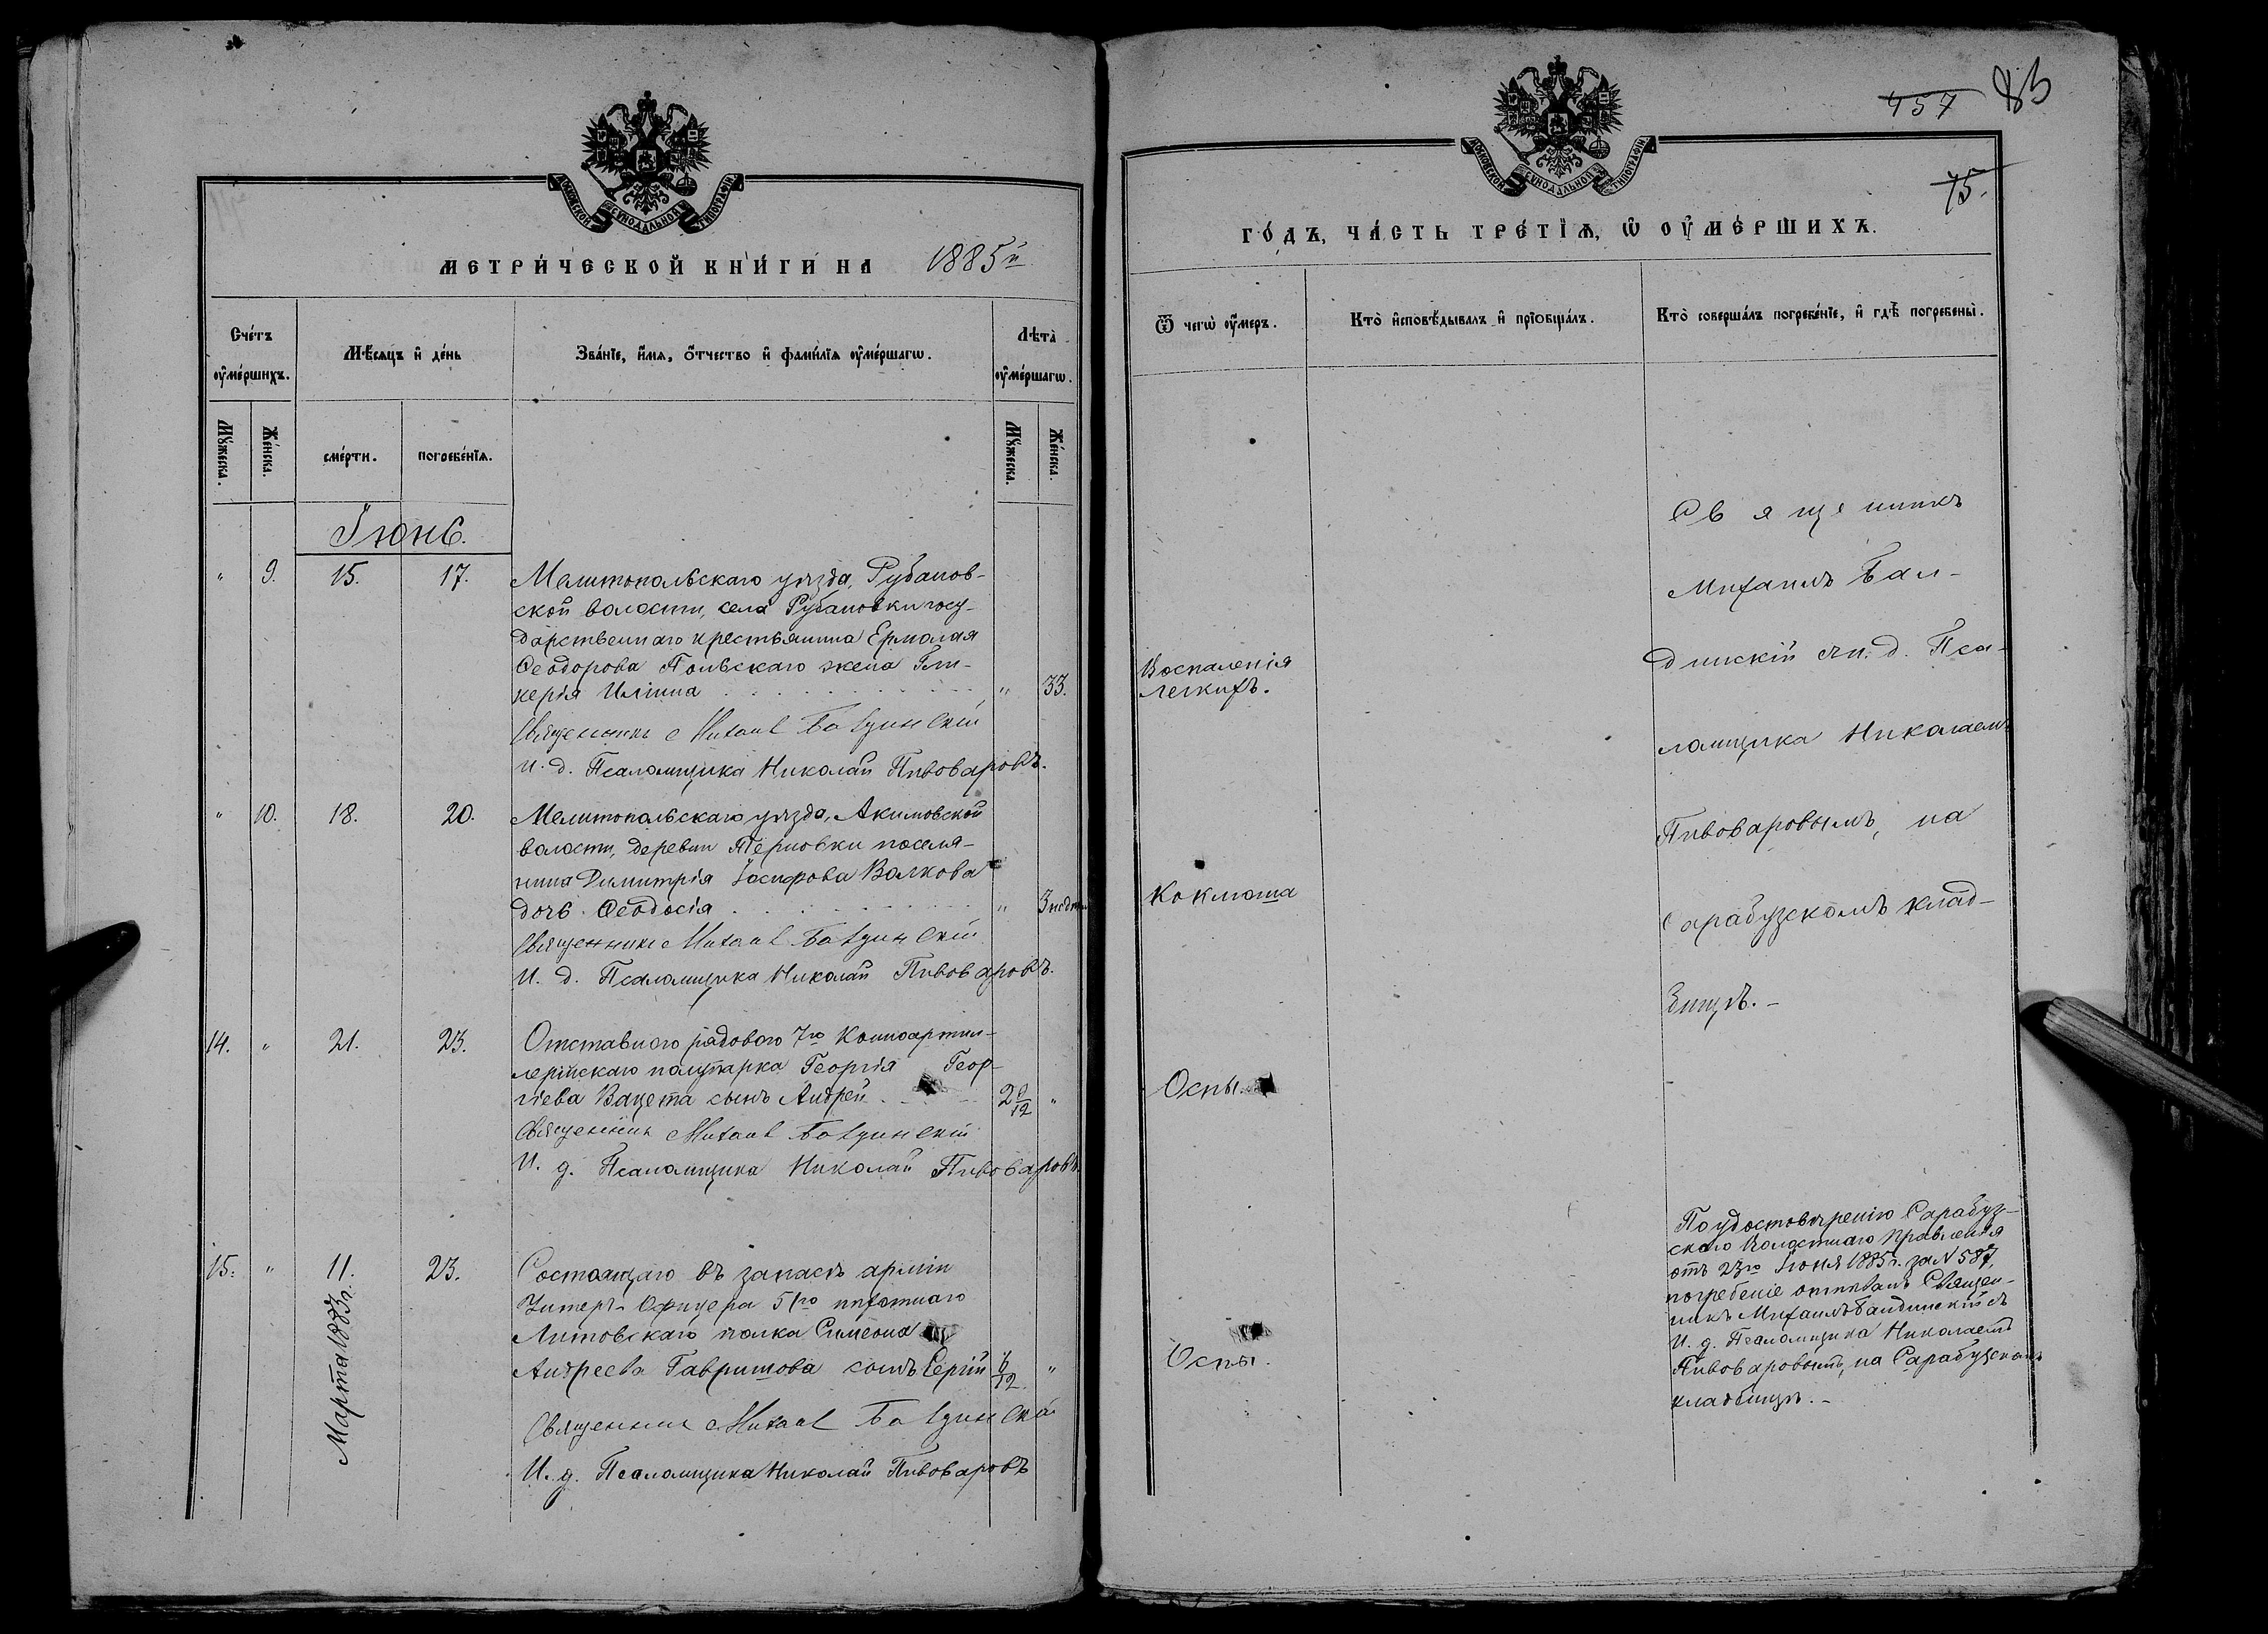 МОСКОВСКОЙ СѴНОДАЛЬНОЙ ТИПОГРАФІИ
МЕТРИ́ЧЕСКОЙ КНИ́ГИ НА 1885й
Сче́тъ ᲂу҆ме́ршихъ.
Мѣ́сяцъ и҆ де́нь
Зва́нїе, и҆́мя, ѻ҆́тчество и҆ фами́лїя ᲂу҆ме́ршагѡ.
Лѣ́та ᲂу҆ме́ршагѡ.
Мꙋ́жеска.
Же́нска.
сме́рти.
погребе́нїѧ.
Мꙋ́жеска.
Же́нска.
Іюнь.
" 9. 15. 17. Мелитопольскаго уѣзда, Рубанов-
ской волости, села Рубановки госу-
дарственнаго крестьянина Ермолая
Ѳеодорова Польскаго жена Гли-
керія Иліина " 33.
Священникъ Михаил Балдинскій
И. д. Псаломщика Николай Пивоваровъ.
" 10. 18. 20. Мелитопольскаго уѣзда, Акимовской
волости, деревни Терновки поселя-
нина Димитрія Іосифова Волкова
дочь Ѳеодосія " 3 недѣли
Священникъ Михаил Балдинскій
И. д. Псаломщика Николай Пивоваровъ.
14. " 21. 23. Отставного рядового 7го Конноартил-
лерійскаго полупарка Георгія Геор-
гіева Вацета сынъ Андрей "
Священникъ Михаил Балдинскій
И. д. Псаломщика Николай Пивоваровъ.
15. " 11. Марта 1883 г. 23. Состоящаго въ запасѣ арміи
Унтеръ-Офицера 51го пѣхотнаго
Литовскаго полка Симеона
Андреева Гавришова сынъ Сергій "
Священник Михаил Балдинскій
И. д. Псаломщика Николай Пивоваровъ
457 83
75.
МОСКОВСКОЙ СѴНОДАЛЬНОЙ ТИПОГРАФІИ
ГО́ДЪ, ЧА́СТЬ ТРЕ́ТЇѦ, Ѡ ОУ҆МЕ́РШИХЪ.
Ѿ чегѡ̀ ᲂу҆́меръ.
Кто̀ и҆сповѣ́дывалъ и҆ прїобща́лъ.
Кто̀ соверша́лъ погребе́нїе, и҆ гдѣ̀ погребены̀.
Священикъ
Михаилъ Бал-
динскій съ и. д. Пса-
ломщика Николаемъ
Пивоваровымъ, на
Сарабузскомъ клад-
бищѣ.-
Воспаленія
легкихъ.
Коклюша
Оспы.
Оспы.
По удостовѣренію Сарабуз-
скаго Волостнаго Правленія
отъ 23го Іюня 1885 г. за N 587,
погребеніе отпѣвалъ Священ-
никъ Михаилъ Балдинскій съ
И. д. Псаломщика Николаемъ
Пивоваровымъ, на Сарабузскомъ
кладбищѣ.-